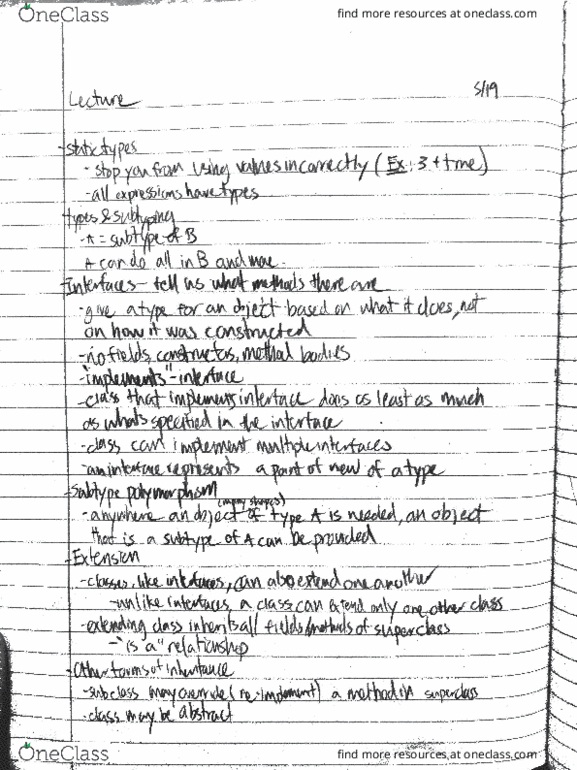 OneClass
find more resources at oneclass.com
5/19
Lecture
- static types
- stop you from using values incorrectly (Ex: 3 + true)
- all expressions have types
types & subtyping
- A = subtype of B
A can do all in B and more
- Interfaces - tell us what methods there are
- give a type for an object based on what it does, not
on how it was constructed
- no fields, constructors, method bodies
- "implements" - interface
- class that implements interface does as least as much
as whats specified in the interface
- class can implement multiple interfaces
- an interface represents a part of view of a type
- Subtype polymorphism
(many shapes)
- anywhere an object of type A is needed, an object
that is a subtype of A can be provided
- Extension
- classes, like interfaces, can also extend one another
- unlike interfaces, a class can extend only one other class
- extending class inherits all fields/methods of superclass
- "is a" relationship
- Other forms of inheritance
- subclass may override (re-implement) a method in superclass
- class may be abstract
OneClass
find more resources at oneclass.com